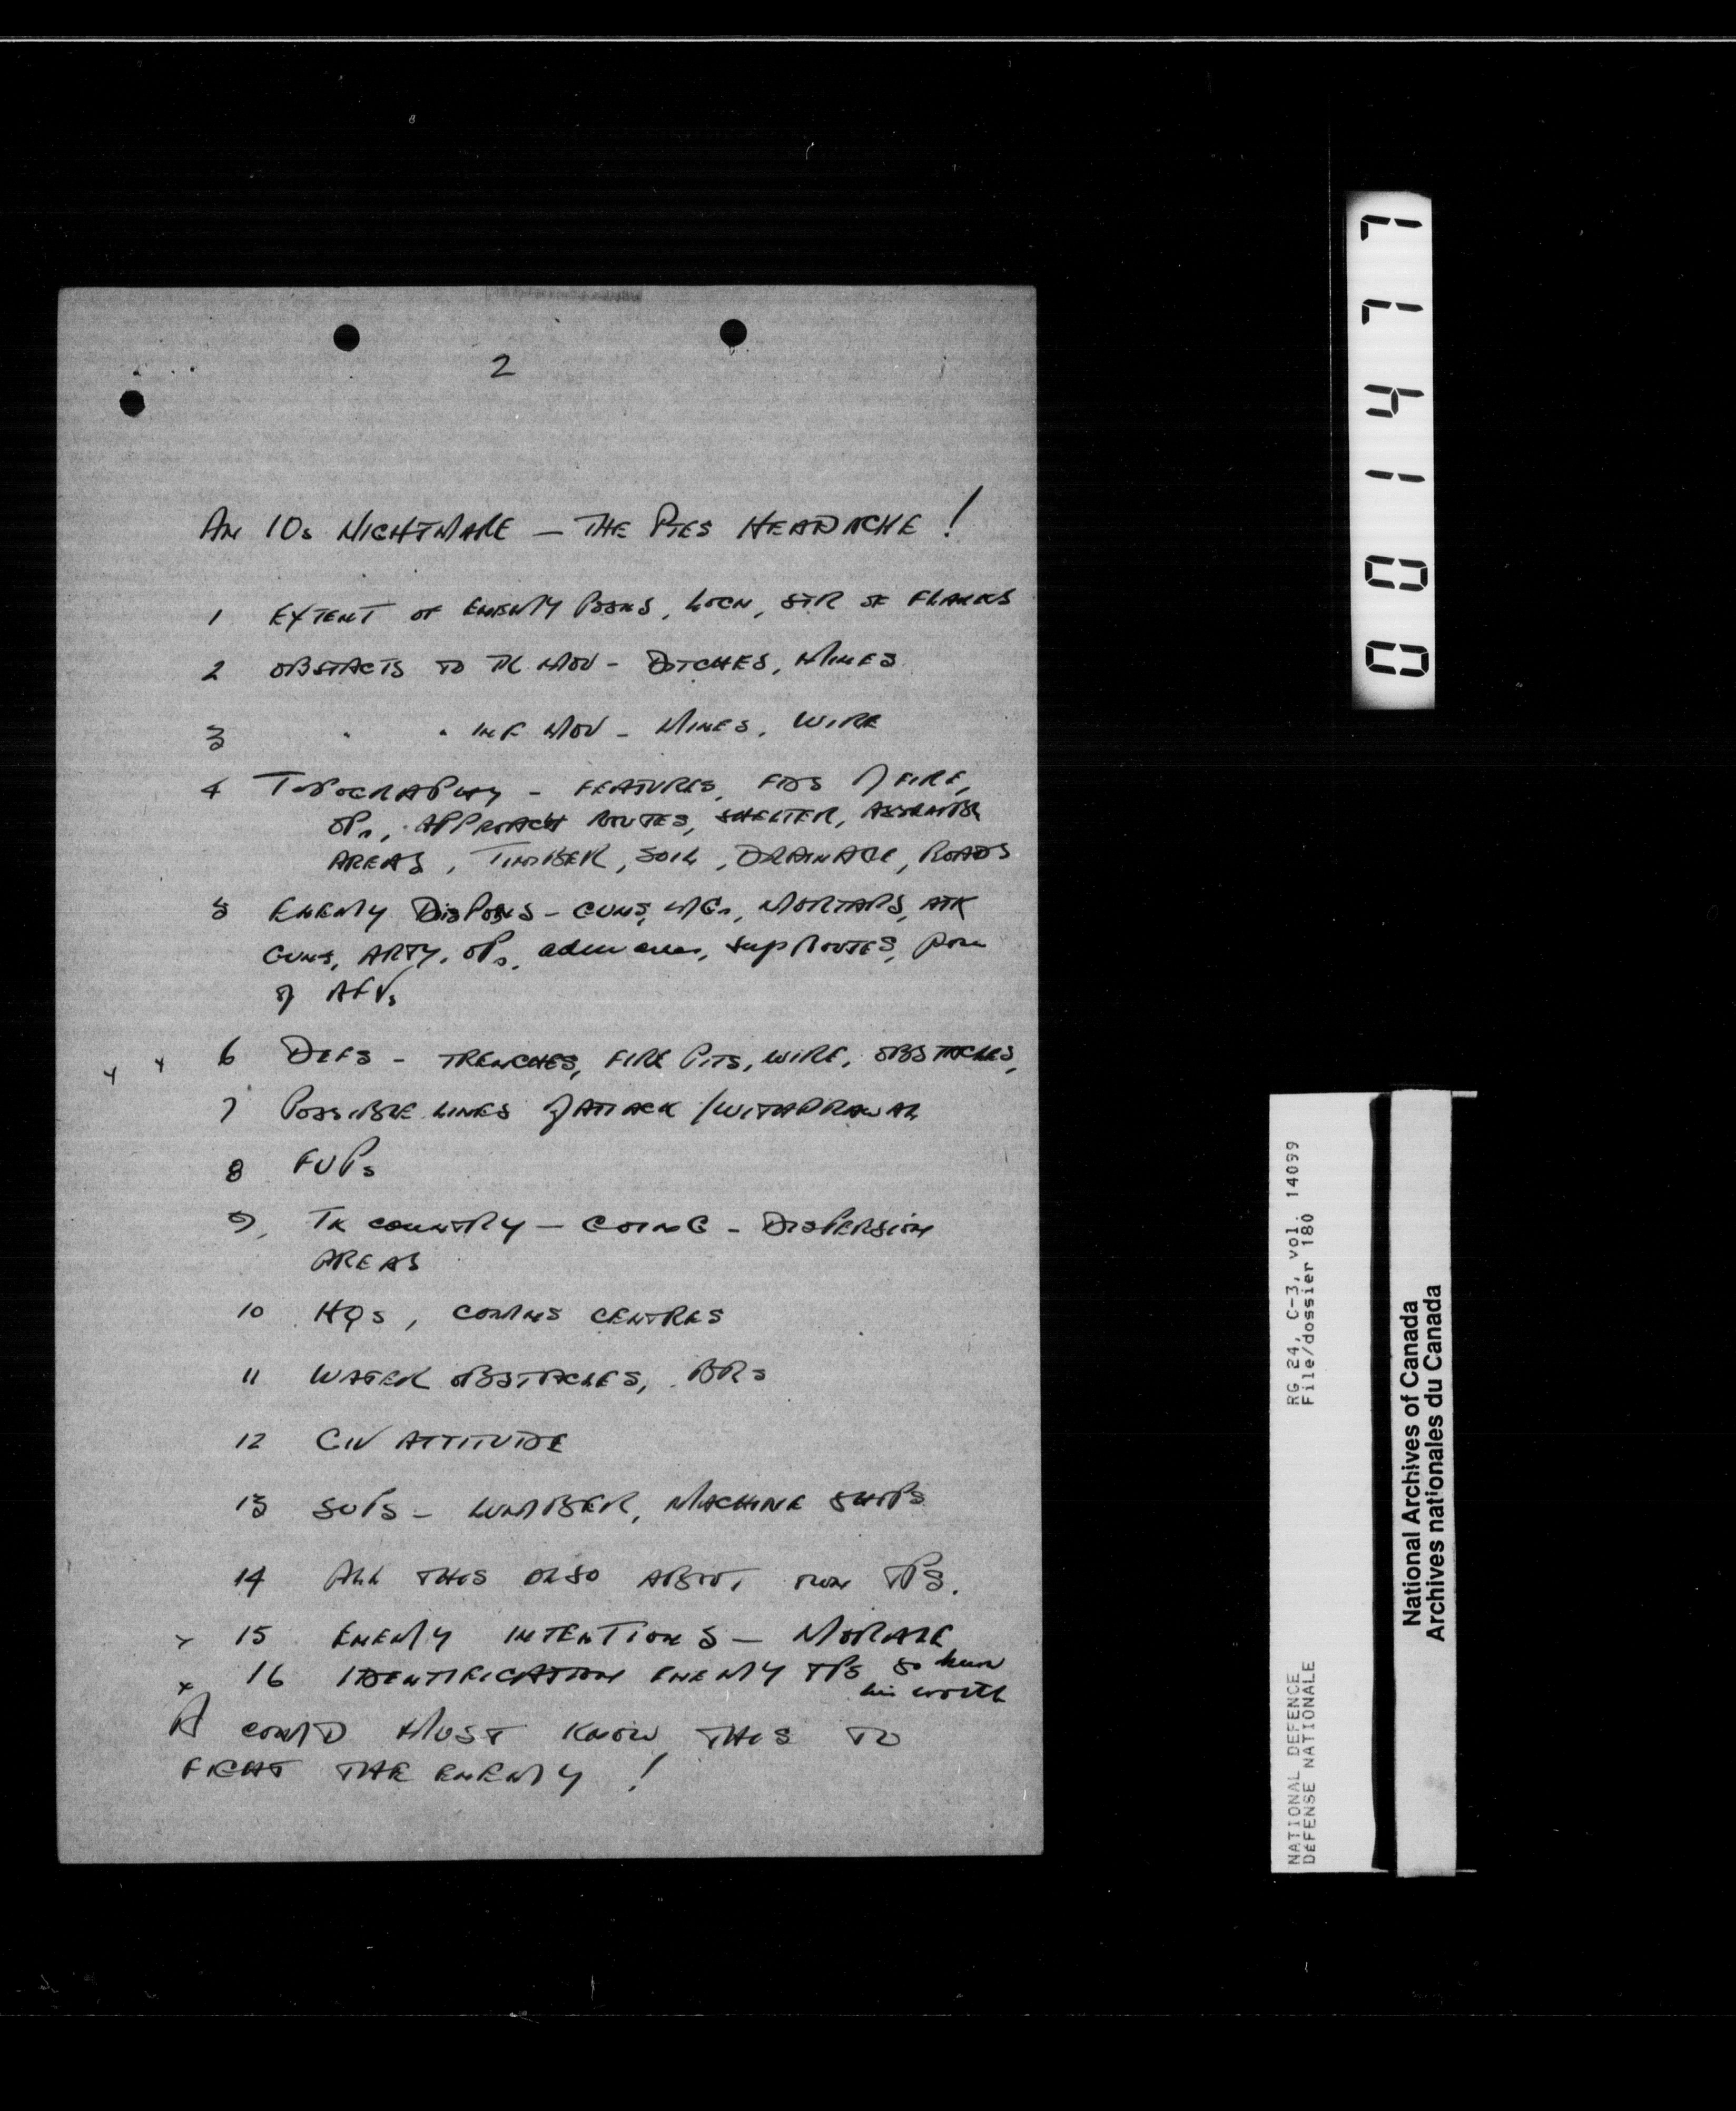 2
AN IOs NIGHTMARE — THE PTES HEADACHE!
1 EXTENT OF ENEMY POSNS, LOCN, STR OF FLANKS
2 OBSTACTS TO TK MOV - DITCHES, MINES
3 " " INF MOV - MINES, WIRE
4 TOPOGRAPHY - FEATURES, FDS of FIRE,
OPs, APPROACH ROUTES, SHELTER, ASSEMBLY
AREAS, TIMBER, SOIL, DRAINAGE, ROADS
5 ENEMY DISPOSNS - GUNS, MGs, MORTARS, ATK
GUNS, ARTY, OPs, adm areas, sup ROUTES, posn
of AFVs
6 DEFS - TRENCHES, FIRE PITS, WIRE, OBSTACLES,
7 POSSIBLE LINES of ATTACK / WITHDRAWAL
8 FUPs
9, TK COUNTRY — GOING - DISPERSION
AREAS
10 HQs, COMMS CENTRES
11 WATER OBSTACLES, BRs
12 CIV ATTITUDE
13 SUPS - LUMBER, MACHINE SHOPS
14 ALL THIS ALSO ABOUT OWN TPS.
x 15 ENEMY INTENTIONS — MORALE
x 16 IDENTIFICATION ENEMY TPS so know
his worth
A COMD MUST KNOW THIS TO
FIGHT THE ENEMY!
001477
NATIONAL DEFENCE RG 24, C-3, vol. 14099
DÉFENSE NATIONALE File/dossier 180
National Archives of Canada
Archives nationales du Canada